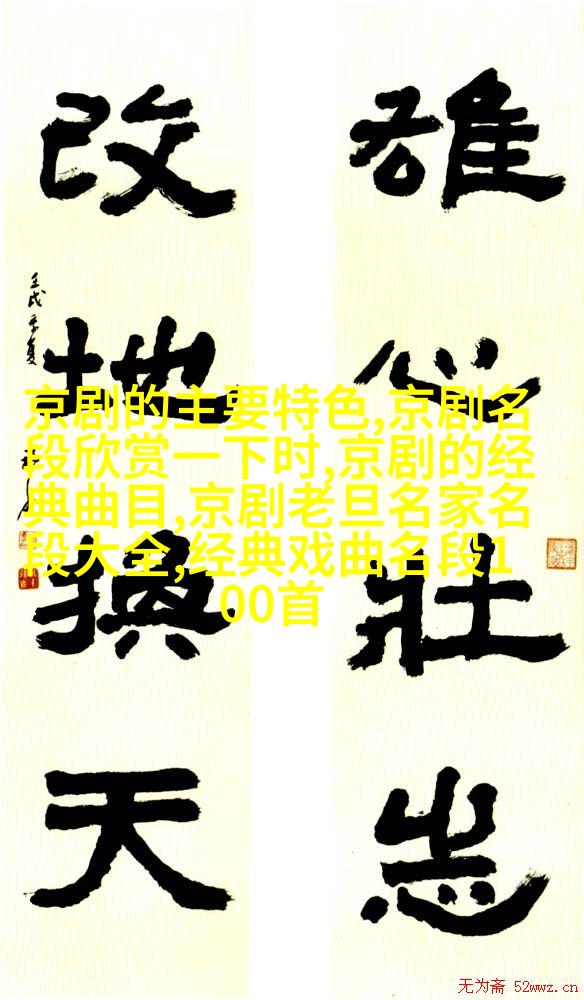 雄心壯志
改地換天
壬戌季夏
京剧的主要特色,京剧名
段欣赏一下时,京剧的经
典曲目,京剧老旦名家名
段大全,经典戏曲名段1
00首
无为斋 52wwz.cn